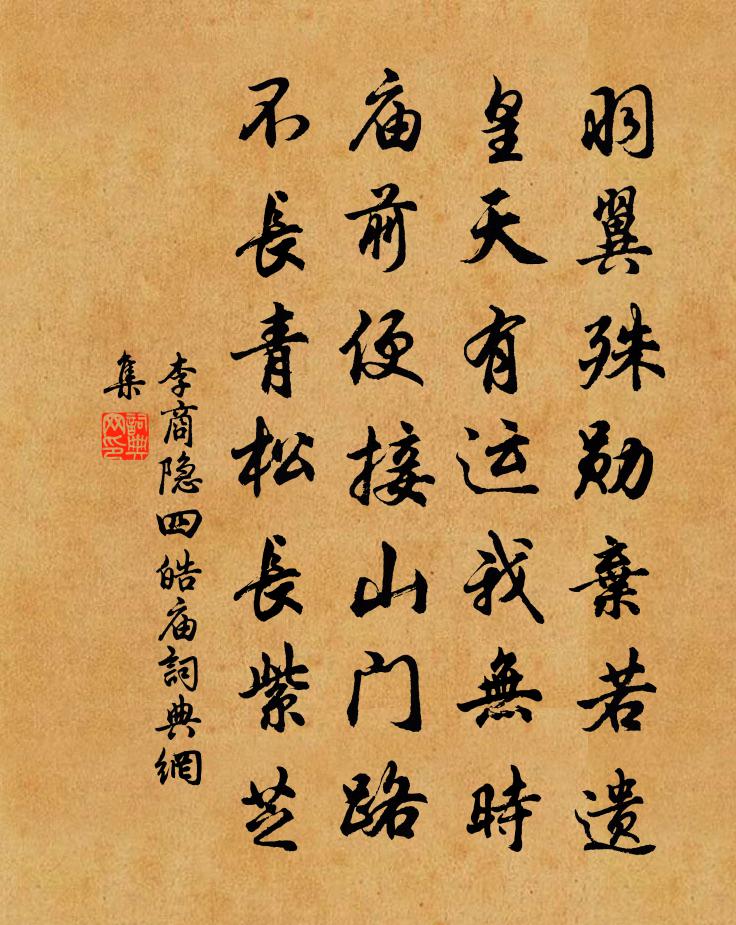 羽翼殊勋棄若遗
皇天有运我無時
庙前便接山门路
不長青松長紫芝
李商隐四皓庙詞典網
集
詞典
网印